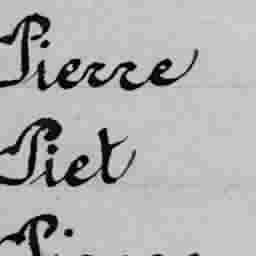 Pierre
Piet